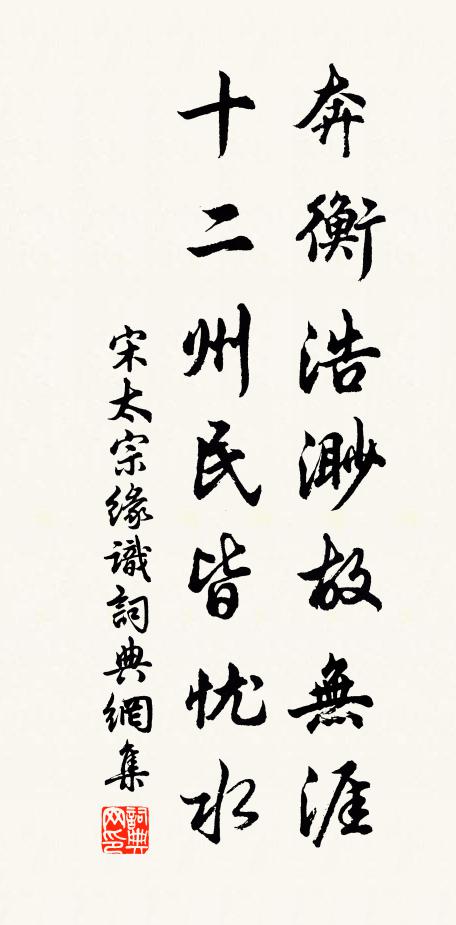 奔衡浩渺故無涯
十二州民皆忧水
宋太宗緣識詞典網集
詞典
网印